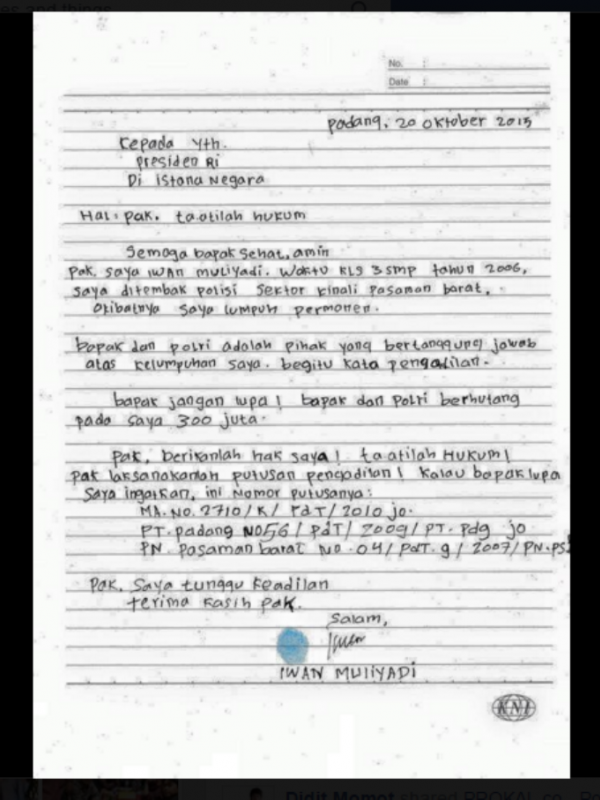 es and things
No. :
Date :
padang, 20 oktober 2015
Kepada Yth.
presiden Ri
Di istana Negara
Hal: pak, taatilah hukum
Semoga bapak sehat, amin
pak, saya iwan muliyadi. waktu kls 3 smp tahun 2006,
saya ditembak polisi sektor kinali pasaman barat,
akibatnya saya lumpuh permanen.
bapak dan polri adalah pihak yang bertanggung jawab
atas kelumpuhan saya. begitu kata pengadilan.
bapak jangan lupa! bapak dan polri berhutang
pada saya 300 juta.
pak, berikanlah hak saya! taatilah HUKUM!
pak laksanakanlah putusan pengadilan! kalau bapak lupa
saya ingatkan, ini nomor putusanya:
MA. NO. 2710/K/PdT/2010 jo.
PT. padang NO 56/PdT/2009/PT. pdg jo
PN. Pasaman barat NO. 04/PdT.g/2007/PN.PSB
Pak, Saya tunggu keadilan
terima kasih pak.
salam,
Iwan
IWAN MULIYADI
KNI
Didit Momot shared PROKAL.co